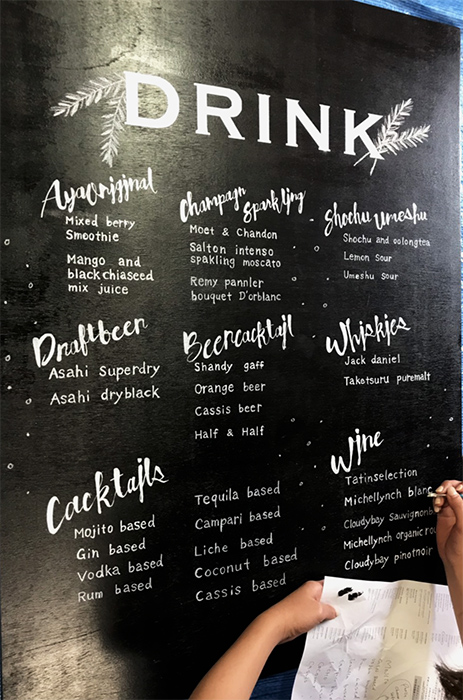 DRINK
AyaOrigjnal
Mixed berry
Smoothie
Mango and
black chiaseed
mix juice
Champagn
Sparkljng
Moet & Chandon
Salton intenso
spakling moscato
Remy pannler
bouquet D'orblanc
Shochu Umeshu
Shochu and oolongtea
Lemon sour
Umeshu sour
Draftbeer
Asahi Superdry
Asahi dryblack
Beercacktajl
Shandy gaff
Orange beer
Cassis beer
Half & Half
Whjskjes
Jack daniel
Taketsuru puremalt
Cacktajls
Mojito based
Gin based
Vodka based
Rum based
Tequila based
Campari based
Liche based
Coconut based
Cassis based
Wjne
Tatinselection
Michellynch blanc
Cloudybay sauvignonb
Michellynch organic
Cloudybay pinotnoir